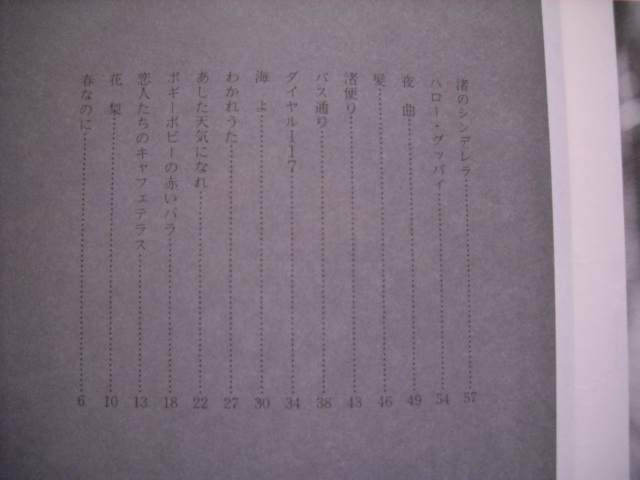 渚のシンデレラ……57
ハロー・グッバイ……54
夜曲……49
髪……46
渚便り……43
バス通り……38
ダイヤル117……34
海よ……30
わかれうた……27
あした天気になれ……22
ボギーボビーの赤いバラ……18
恋人たちのキャフェテラス……13
花梨……10
春なのに……6